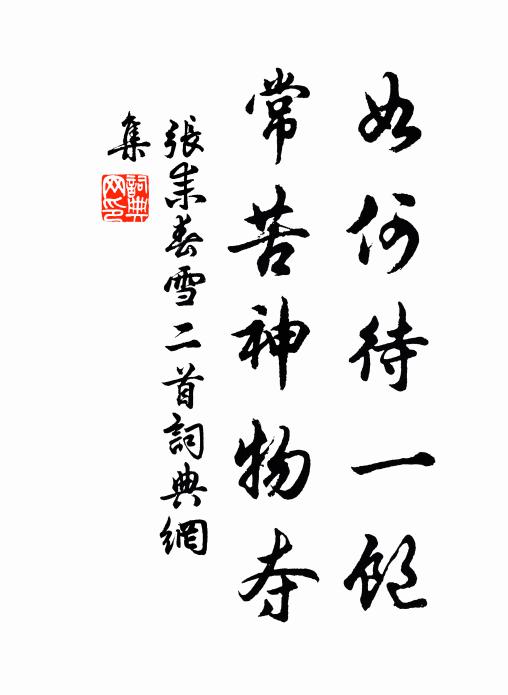 如何待一飽
常苦神物夺
張耒春雪二首詞典網
集
詞典
网印